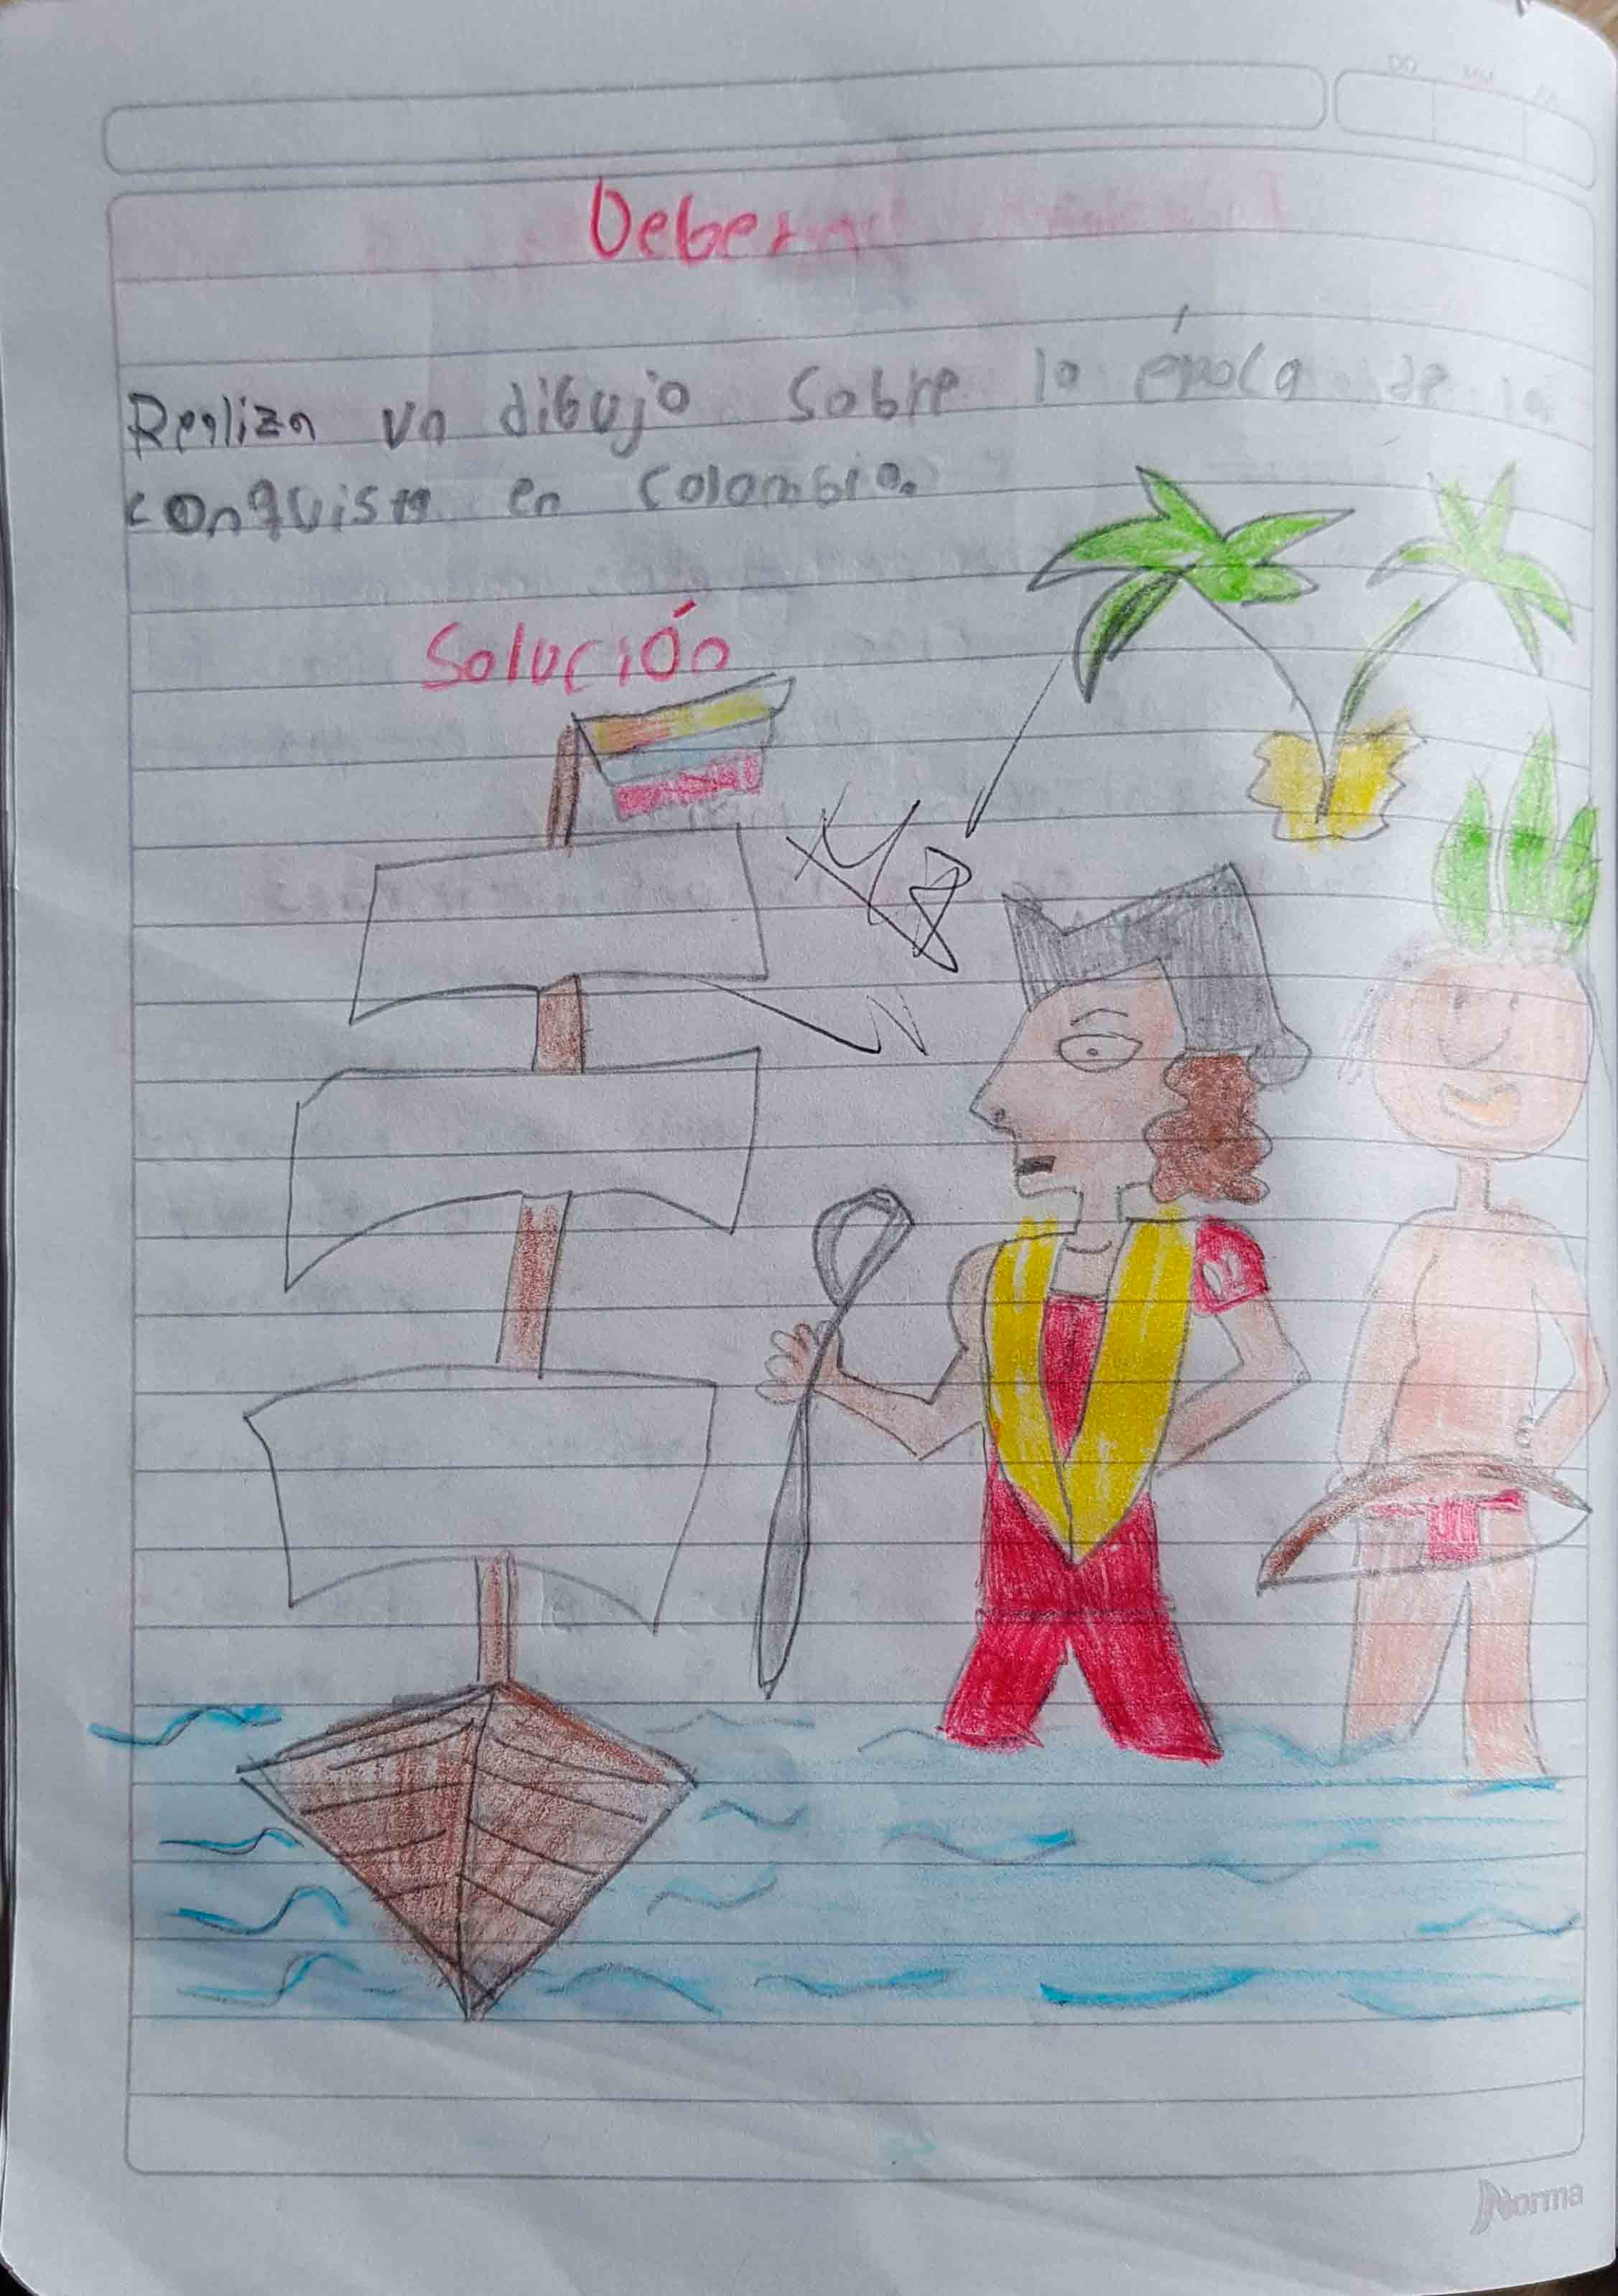 Deber
Realiza un dibujo sobre la época de la
conquista en Colombia.
Solución
Norma